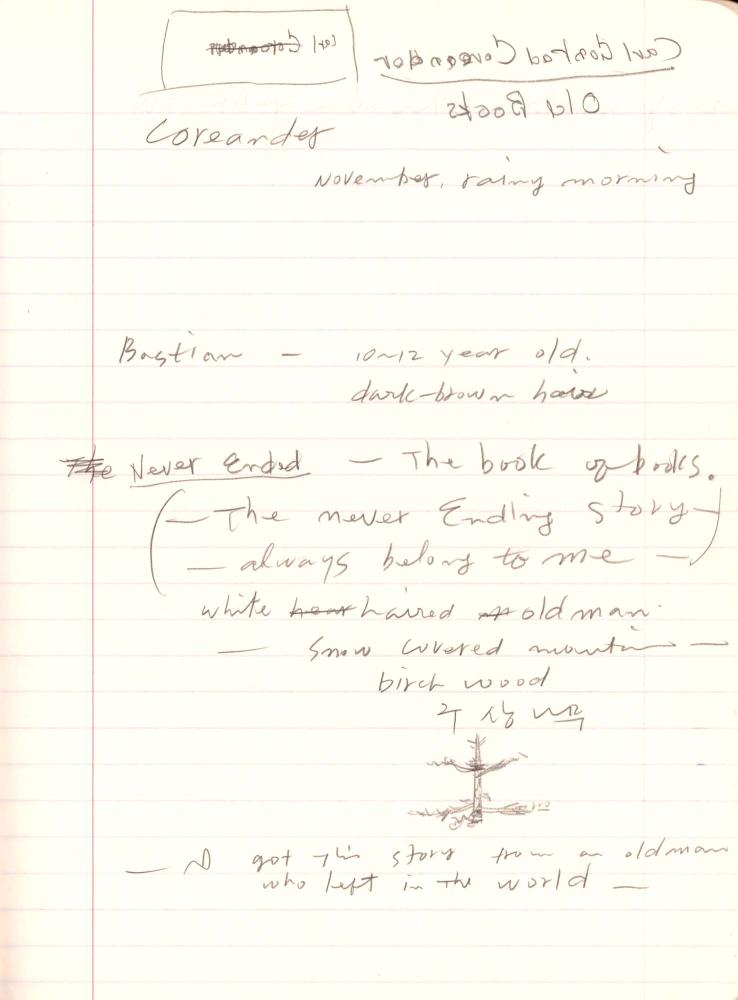 Carl Coreander
Carl Conrad Coreander
Old Books
Coreander
November, rainy morning
Bastian — 10~12 year old.
dark-brown hair
The Never Ended — The book of books.
(— The never Ending story —
— always belong to me —)
white haired old man.
— Snow covered mountain —
birch wood
구 상 나무
— I got this story from an oldman
who left in the world —